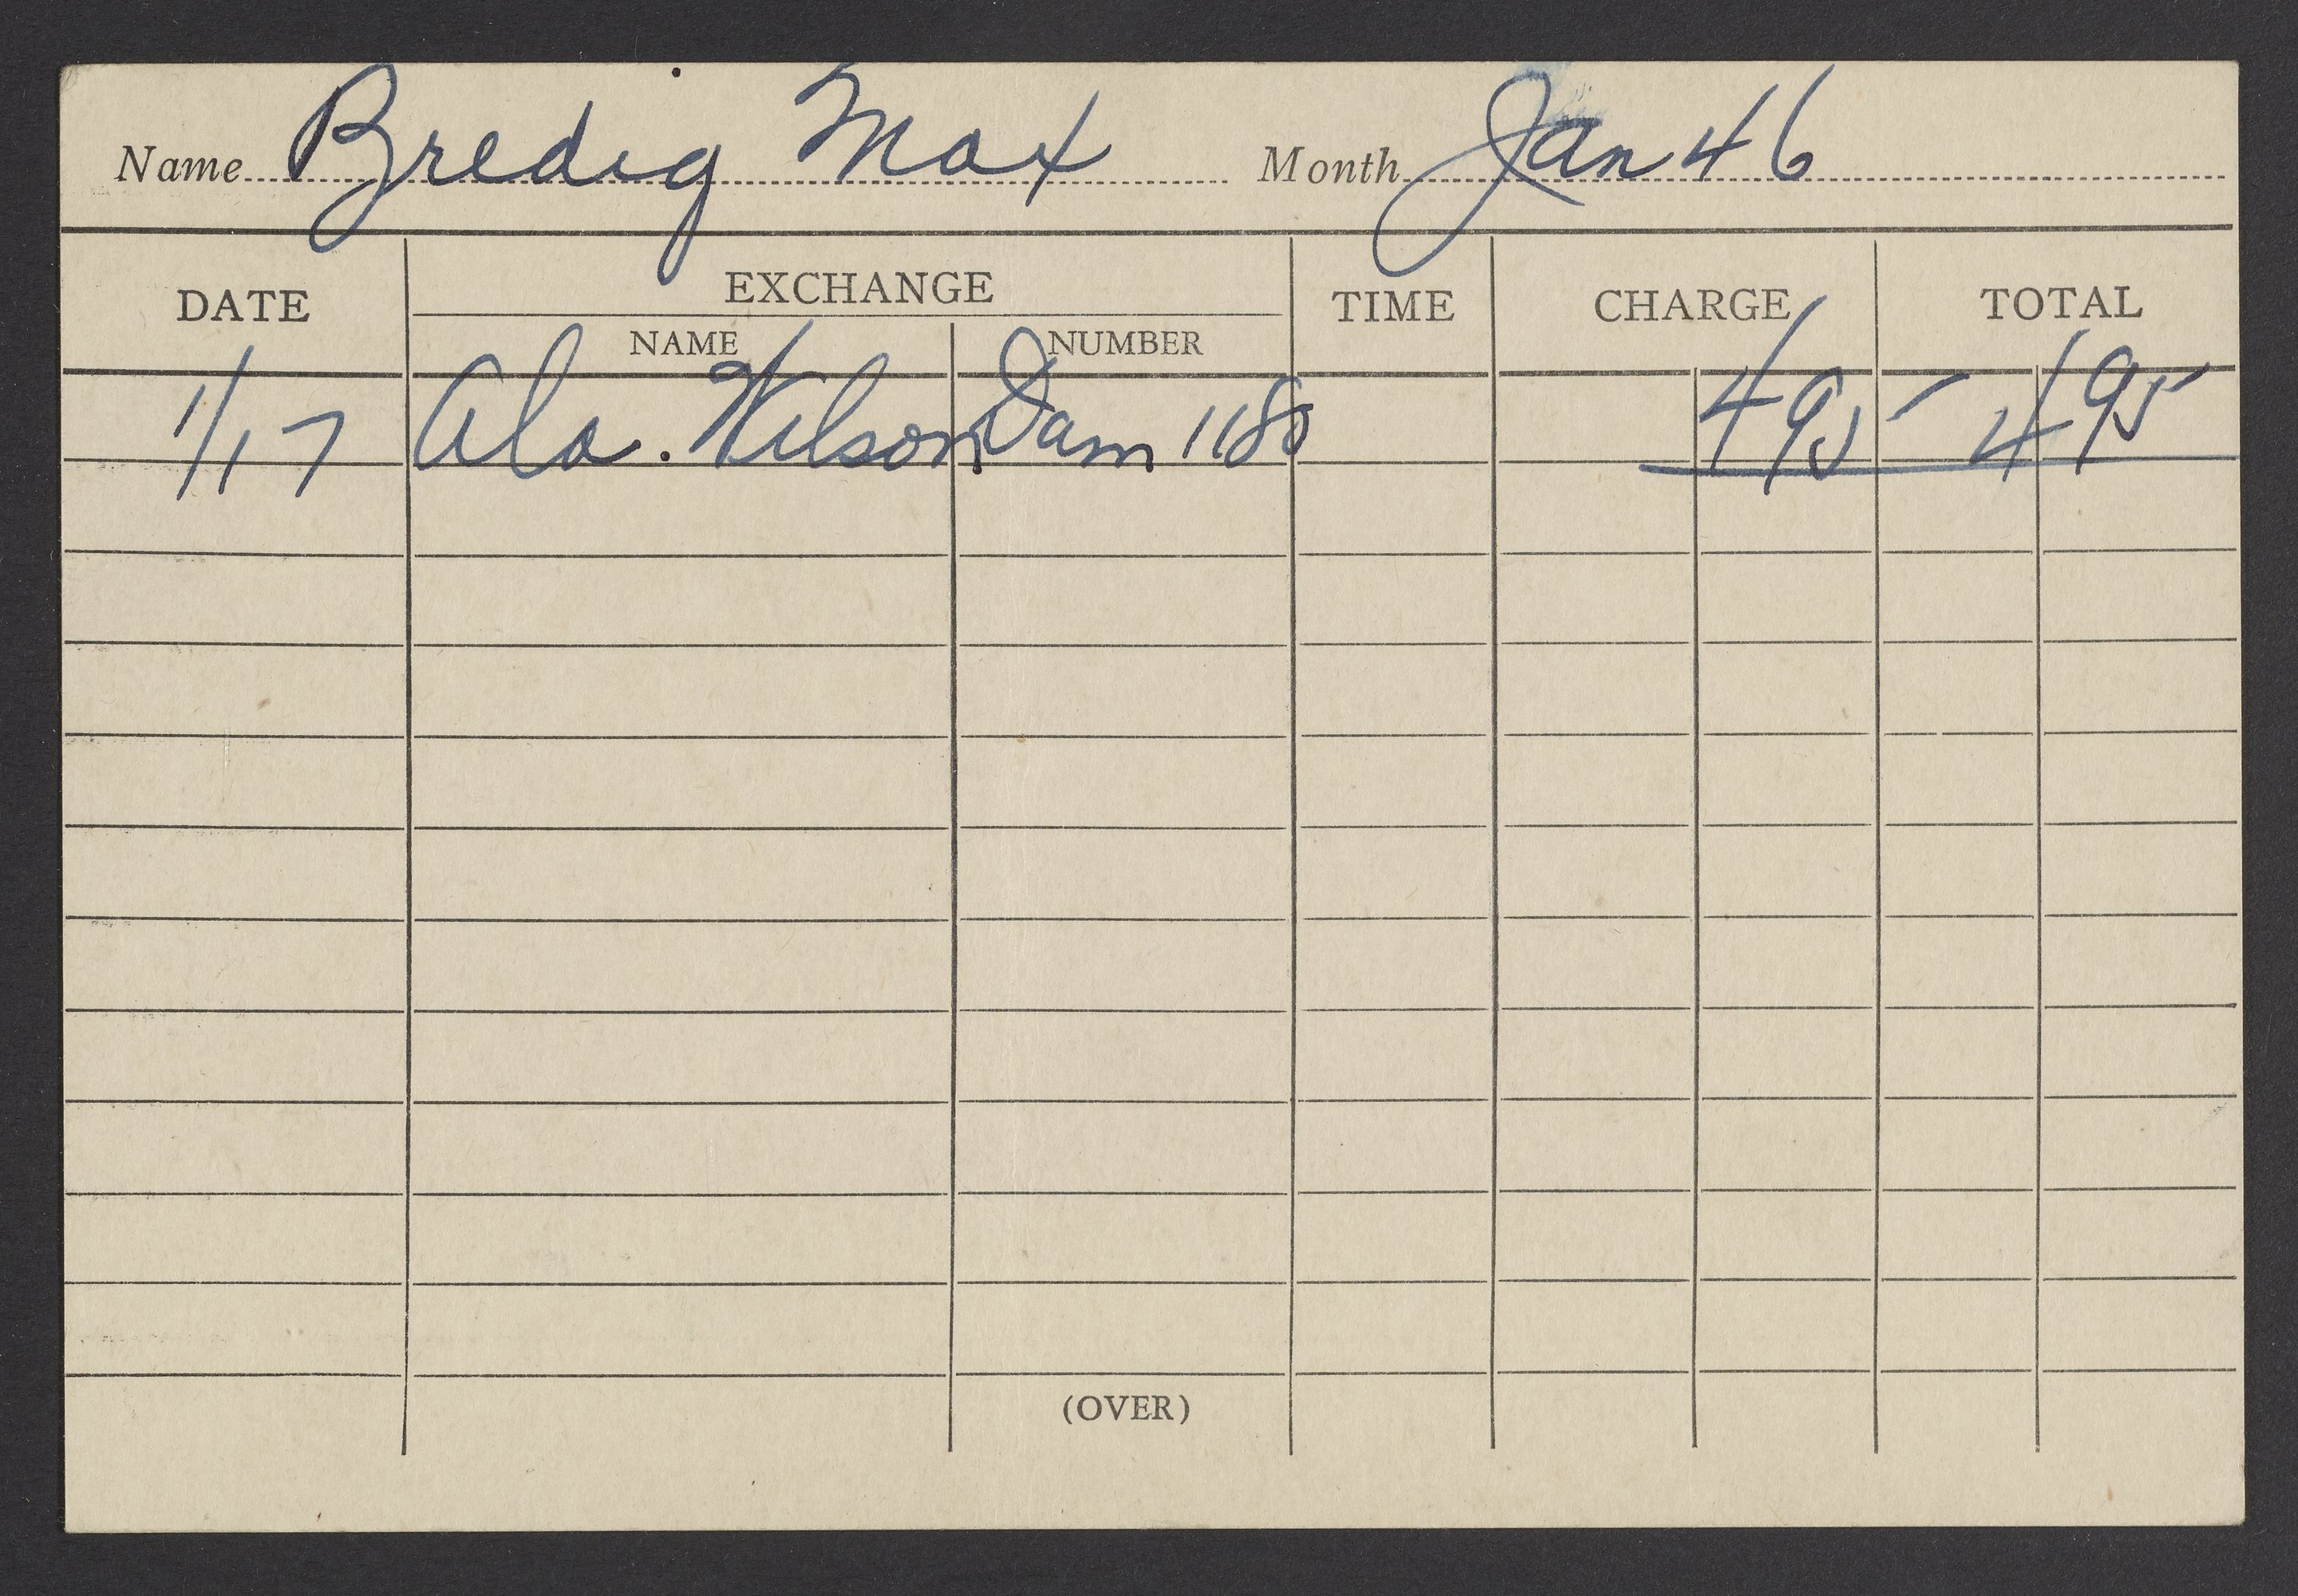 Name Bredig Max Month Jan 46
DATE EXCHANGE TIME CHARGE TOTAL
NAME NUMBER
1/17 Ala. Wilson Dam 1180 4 95 4 95
(OVER)